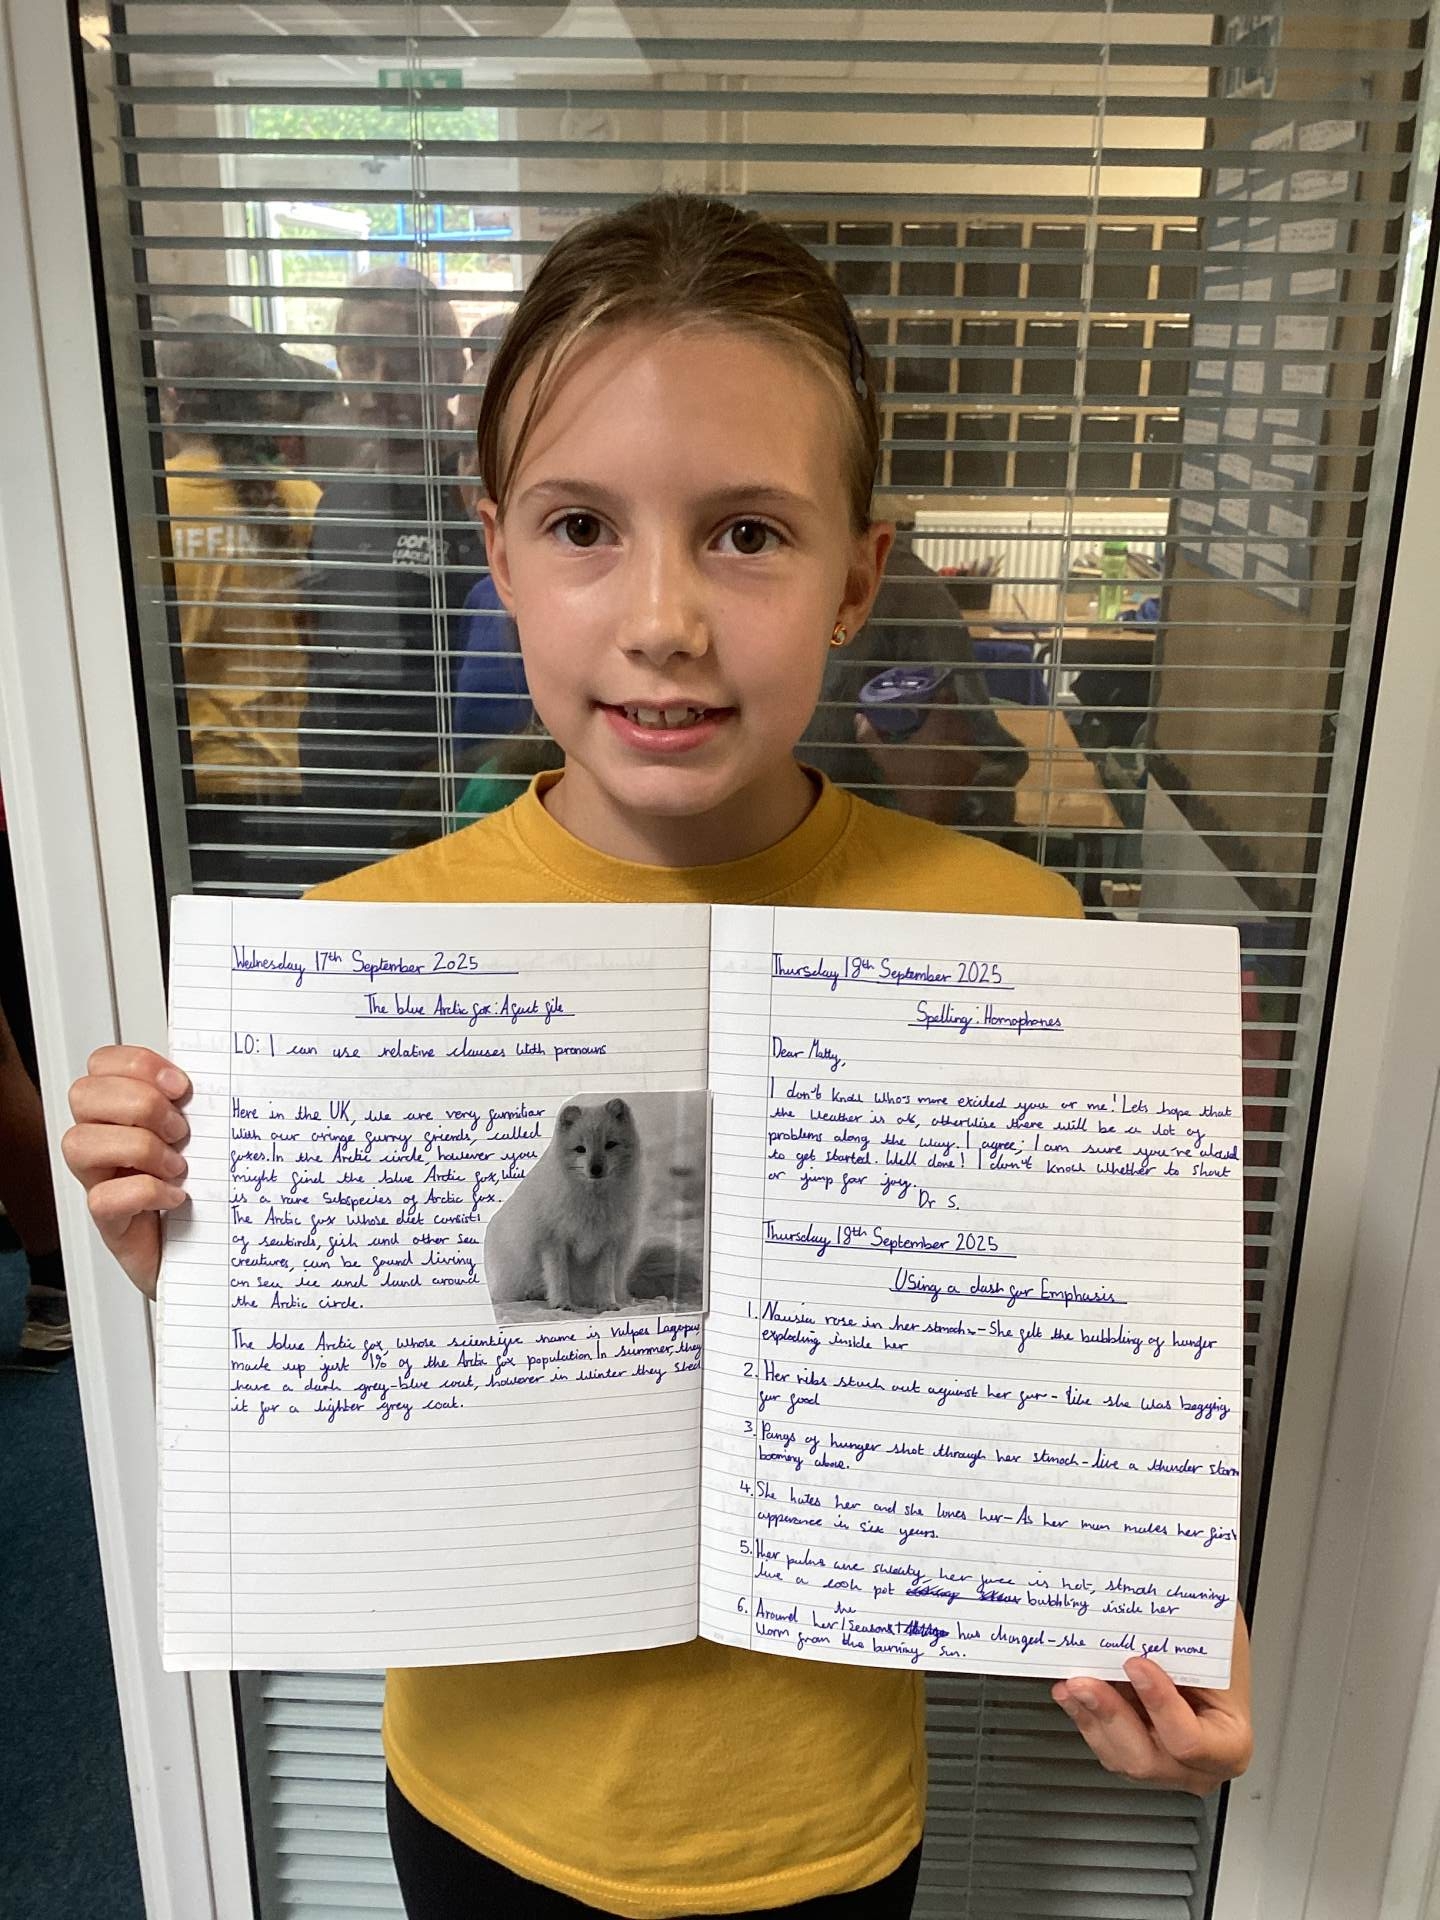 IFFIN
Wednesday 17th September 2025
The blue Arctic fox: A fact file
LO: I can use relative clauses with pronouns
Here in the UK, we are very
with our oringe furry friends, called
foxes. In the Arctic circle, however you
might find the blue Arctic fox,
is a rare subspecies of Arctic fox.
The Arctic fox whose diet consist
of seabirds, fish and other sea
creatures, can be found living
on sea ice and land around
the Arctic circle.
The blue Arctic fox, whose scientific name is vulpes Lagopus,
made up just 1% of the Arctic fox population In summer, they
have a dark grey-blue coat, however in winter they shed
it for a lighter grey coat.
Thursday 18th September 2025
Spelling: Homophones
Dear Matty,
I don't know who's more excited you or me! Lets hope that
the weather is ok, otherwise there will be a lot of
problems along the way. I agree; I am sure you're
to get started. Well done! I don't know whether to shout
or jump for joy.
Dr S.
Thursday 18th September 2025
Using a dash for Emphasis
1. Nausia rose in her - She felt the bubbling of hunger
exploding inside her
2. Her ribs stuck out against her fur - like she was begging
for food
3. Pangs of hunger shot through her stmach - like a thunder storm
booming above.
4. She hates her and she loves her - As her mum makes her first
apperance in six years.
5. Her palms are sweaty, her face is hot, stmach churning
like a cook pot bubbling inside her
6. Around her the seasons has changed - she could feel more
worm from the burning sun.